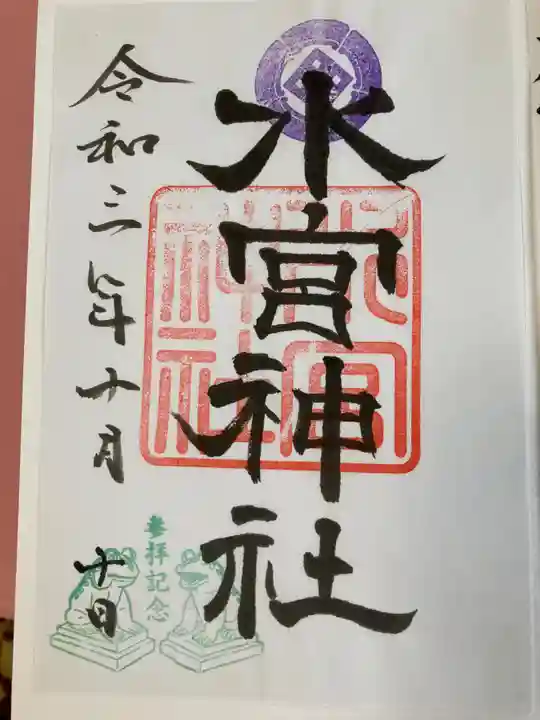 水宮神社
令和三年十月十日
参拝記念